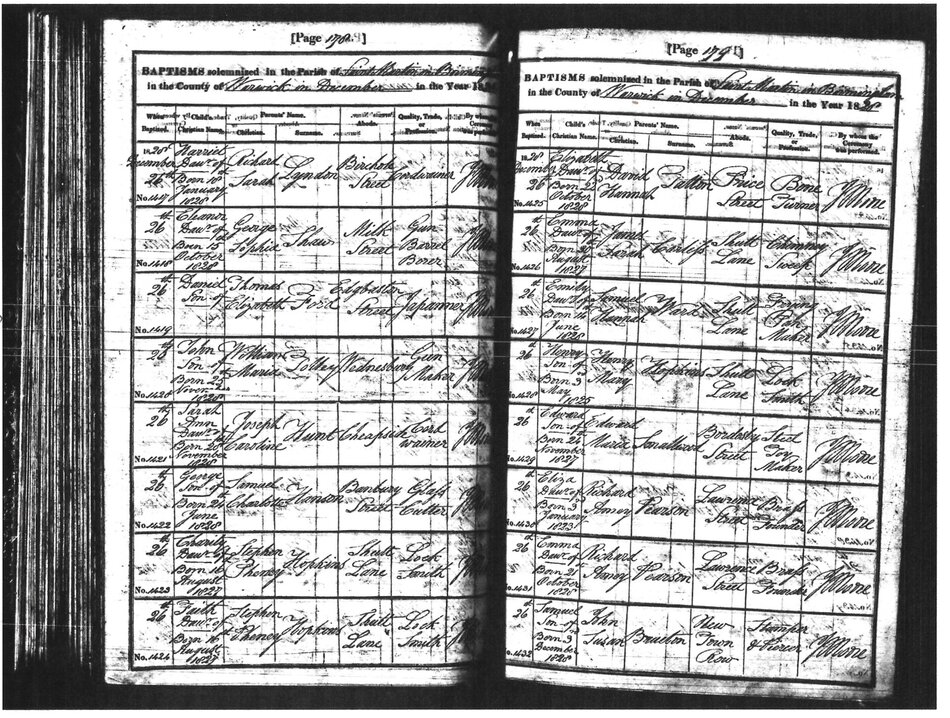 [Page 178.]
BAPTISMS solemnized in the Parish of Saint Martin in Birming
in the County of Warwick in December in the Year 18
When Baptized. Child's Christian Name. Parents' Name. Christian. Surname. Abode. Quality, Trade, or Profession. By whom the Ceremony was performed.
1828 December 26th No. 1417 Harriet Dawr. of Born 18 January 1828 Richard Sarah Lyndon Street Cordwainer
26th No. 1418 Eleanor Dawr. of Born 15 October 1828 George Sophia Shaw Milk Street Gun Barrel Borer
26th No. 1419 Daniel Son of Thomas Elizabeth Ford Edgbaston Street Japanner
26th No. 1420 John Son of Born 25 November 1828 William Maria Wednesbury Gun Maker
26th No. 1421 Sarah Ann Dawr. of Born 20 November 1828 Joseph Caroline Hunt Cheapside Cordwainer
26th No. 1422 George Son of Born 24 June 1828 Samuel Charlotte Hanson Banbury Street Glass Cutter
26th No. 1423 Charity Dawr. of Born 16 August 1827 Stephen Pheney Hopkins Shutt Lane Lock Smith
26th No. 1424 Faith Dawr. of Born 16 August 1827 Stephen Pheney Hopkins Shutt Lane Lock Smith
[Page 179]
BAPTISMS solemnized in the Parish of Saint Martin in Birmingham
in the County of Warwick in December in the Year 1828
Child's Christian Name. Parents' Name. Christian. Surname. Abode. Quality, Trade, or Profession. By whom the Ceremony was performed.
1828 December 26 No. 1425 Elizabeth Dawr. of Born 22 October 1828 David Hannah Price Street Bone Turner J Moore
26th No. 1426 Emma Dawr. of Born 20 August 1827 James Sarah Carless Shutt Lane Chimney Sweep J Moore
26th No. 1427 Emily Dawr. of Born 14 June 1828 Samuel Hannah Ward Shutt Lane Frying Pan Maker J Moore
26th No. 1428 Henry Son of Born 3 May 1825 Henry Mary Hopkins Shutt Lane Lock Smith J Moore
26th No. 1429 Edward Son of Born 24 November 1827 Edward Maria Smallwood Bordesley Street Steel Toy Maker J Moore
26th No. 1430 Eliza Dawr. of Born 3 January 1823 Richard Amey Pearson Lawrence Street Brass Founder J Moore
26th No. 1431 Emma Dawr. of Born 21 October 1828 Richard Amey Pearson Lawrence Street Brass Founder J Moore
26th No. 1432 Samuel Son of Born 3 December 1828 John Susan New Town Row Stamper & Piercer J Moore